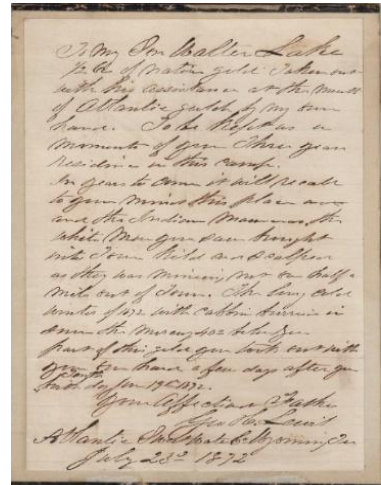 To My Son Walter Lake
1/2 oz of native gold Taken out
with his assistance at the mouth
of Atlantic gulch by my own
hand. To be kept as a
momento of your Three years
residence in this camp.
In years to come it will recall
to your minds this place
and the Indian the
white Man you saw brought
into Town killed and scalped
as they was mining not one half a
mile out of Town. The long cold
winter of 1872 with
the Mercury 40° below
part of this gold you took out with
your own hand a few days after your
birth day Jan 19th 1872.
Your Affectionate Father
Geo Lewis
Atlantic Sweetwater Co Wyoming Ter
July 23d 1872